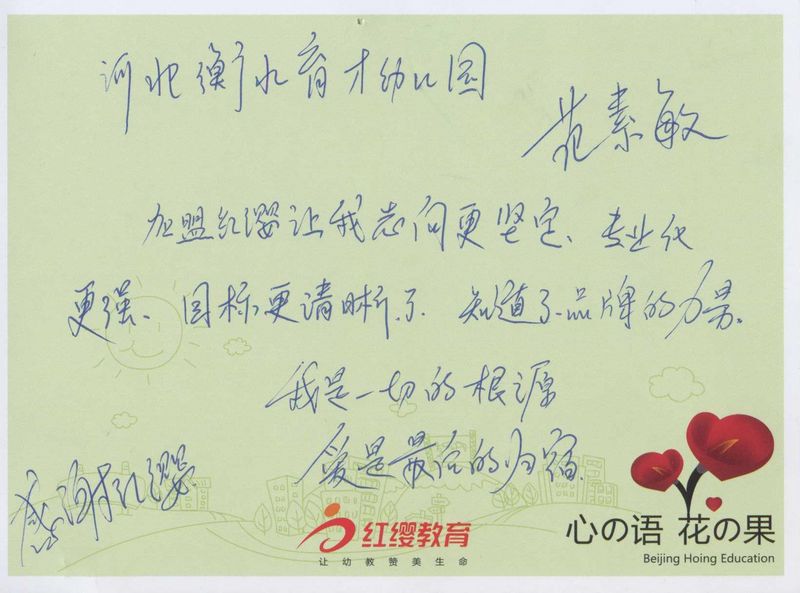 河北衡水育才幼儿园
范素敏
加盟红缨让我志向更坚定、专业化
更强、目标更清晰了、知道了品牌的力量。
我是一切的根源
爱是最后的归宿.
感谢红缨
红缨教育
让幼教赞美生命
心の语 花の果
Beijing Hoing Education